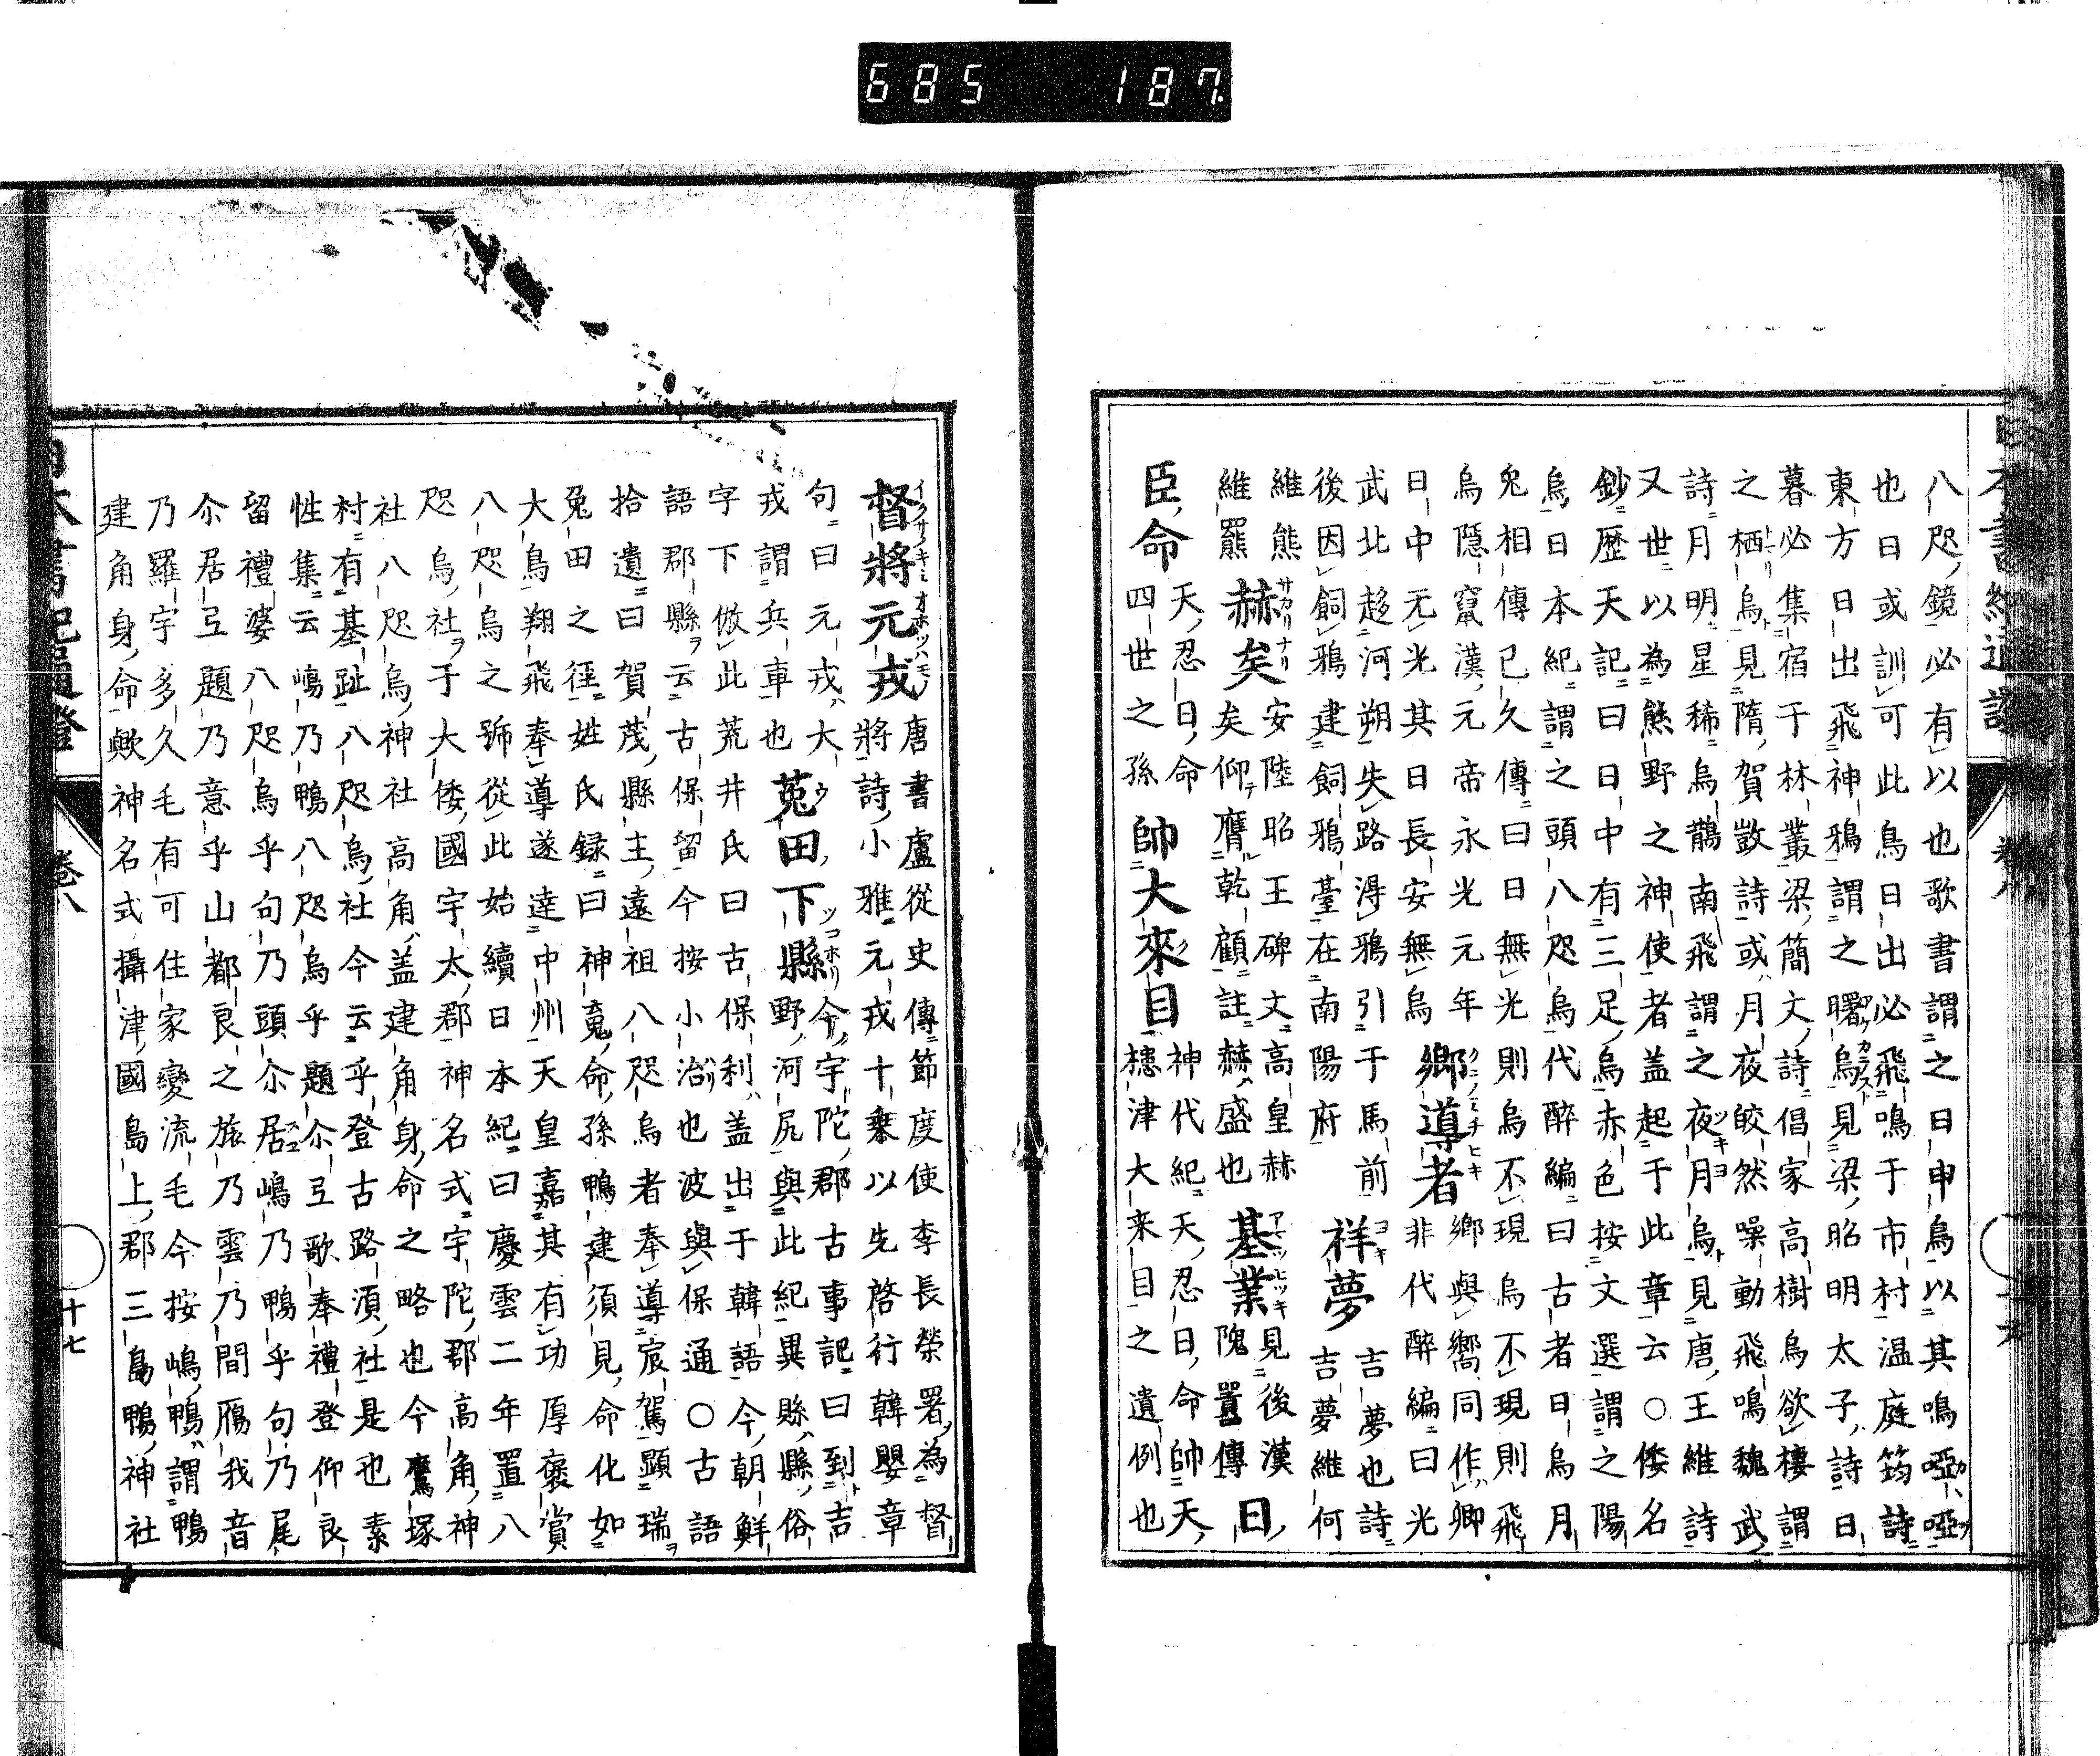 685 187
八咫鏡必有以也歌書謂之日申鳥以其鳴啞啞
也日或訓可此鳥日出必飛鳴于市村温庭筠詩
東方日出飛神鴉謂之曙烏見梁昭明太子詩日
暮必集宿于林叢梁簡文詩倡家高樹烏欲棲謂
之栖烏見隋賀敳詩或月夜皎然噪動飛鳴魏武
詩月明星稀烏鵲南飛謂之夜月烏見唐王維詩
又世以為熊野之神使者盖起于此章云○倭名
鈔歴天記曰日中有三足烏赤色按文選謂之陽
烏日本紀謂之頭八咫烏代醉編曰古者日烏月
兔相傳已久傳曰日無光則烏不現烏不現則飛
烏隱竄漢元帝永光元年
日中无光其日長安無烏
鄉導者
鄉與嚮同作卿
非代醉編曰光
武北趍河朔失路得鴉引于馬前
後因飼鴉建飼鴉臺在南陽府
祥夢
吉夢也詩
吉夢維何
維熊
維羆
赫矣
安陸昭王碑文高皇赫
矣仰膺乾顧註赫盛也
基業
見後漢
隗囂傳
日
臣命
天忍日命
四世之孫
帥大來目
神代紀天忍日命帥天
槵津大来目之遺例也
督將元戎
唐書盧從史傳節度使李長榮署為督
將詩小雅元戎十乗以先啓行韓嬰章
句曰元戎大
戎謂兵車也
菟田下縣
今宇陀郡古事記曰到吉
野河尻與此紀異縣縣俗
字下倣此荒井氏曰古保利盖出于韓語今朝鮮
語郡縣云古保留今按小治也波與保通○古語
拾遺曰賀茂縣主遠祖八咫烏者奉導宸駕顯瑞
兔田之徑姓氏録曰神䰟命孫鴨建須見命化如
大鳥翔飛奉導遂達中州天皇嘉其有功厚褒賞
八咫烏之號從此始續日本紀曰慶雲二年置八
咫烏社于大倭國宇太郡神名式宇陀郡高角神
社八咫烏神社高角盖建角身命之略也今鷹塚
村有基趾八咫烏社今云乎登古路湏社是也素
性集云嶋乃鴨八咫烏乎題尒弖歌奉禮登仰良
留禮婆八咫烏乎句乃頭尒居嶋乃鴨乎句乃尾
尒居弖題乃意乎山都良之旅乃雲乃間鴈我音
乃羅宇多久毛有可住家變流毛今按嶋鴨謂鴨
建角身命歟神名式攝津國島上郡三島鴨神社
卷八
十七